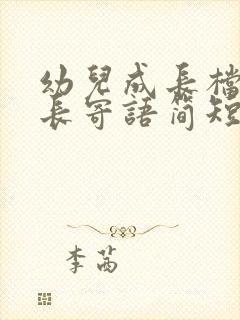 幼兒成長檔
長寄語簡短
李茜